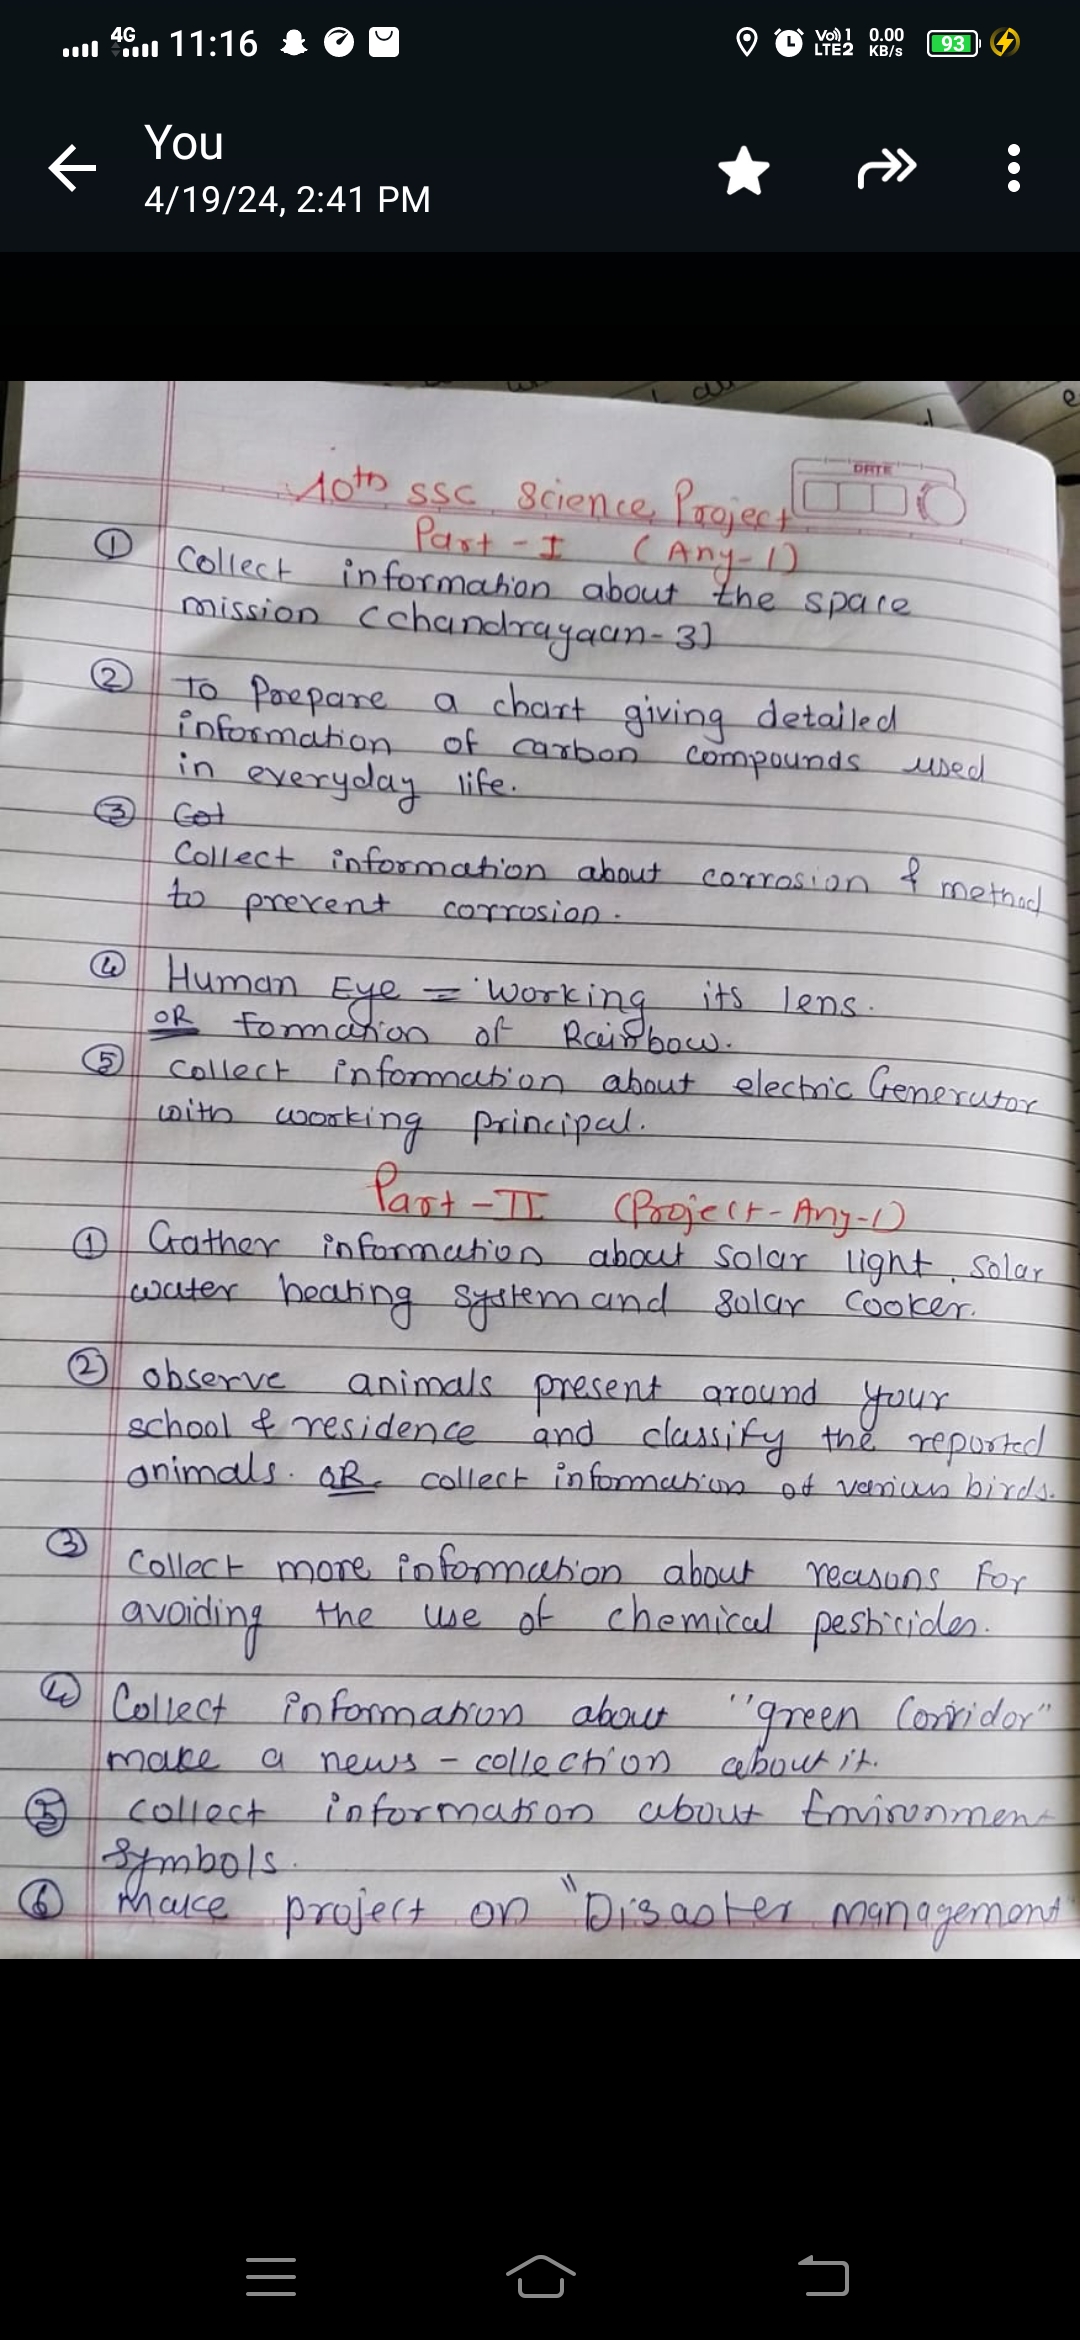 4G 11:16 Vo)) 1 LTE2 0.00 KB/s 93
You
4/19/24, 2:41 PM
DATE
10th SSC Science Project
Part - I (Any-1)
① Collect information about the space
mission (chandrayaan-3)
② To Prepare a chart giving detailed
information of carbon compounds used
in everyday life.
③ Cot
Collect information about corrosion & method
to prevent corrosion.
④ Human Eye = working its lens.
OR formation of Rainbow.
⑤ Collect information about electric Generator
with working principal.
Part - II (Project - Any-1)
① Gather information about solar light, solar
water heating system and solar Cooker.
② observe animals present around your
school & residence and classify the reported
animals. OR collect information of various birds.
③ Collect more information about reasons for
avoiding the use of chemical pesticides.
④ Collect information about "green Corridor"
make a news - collection about it.
⑤ collect information about Environment
symbols.
⑥ Make project on "Disaster management"